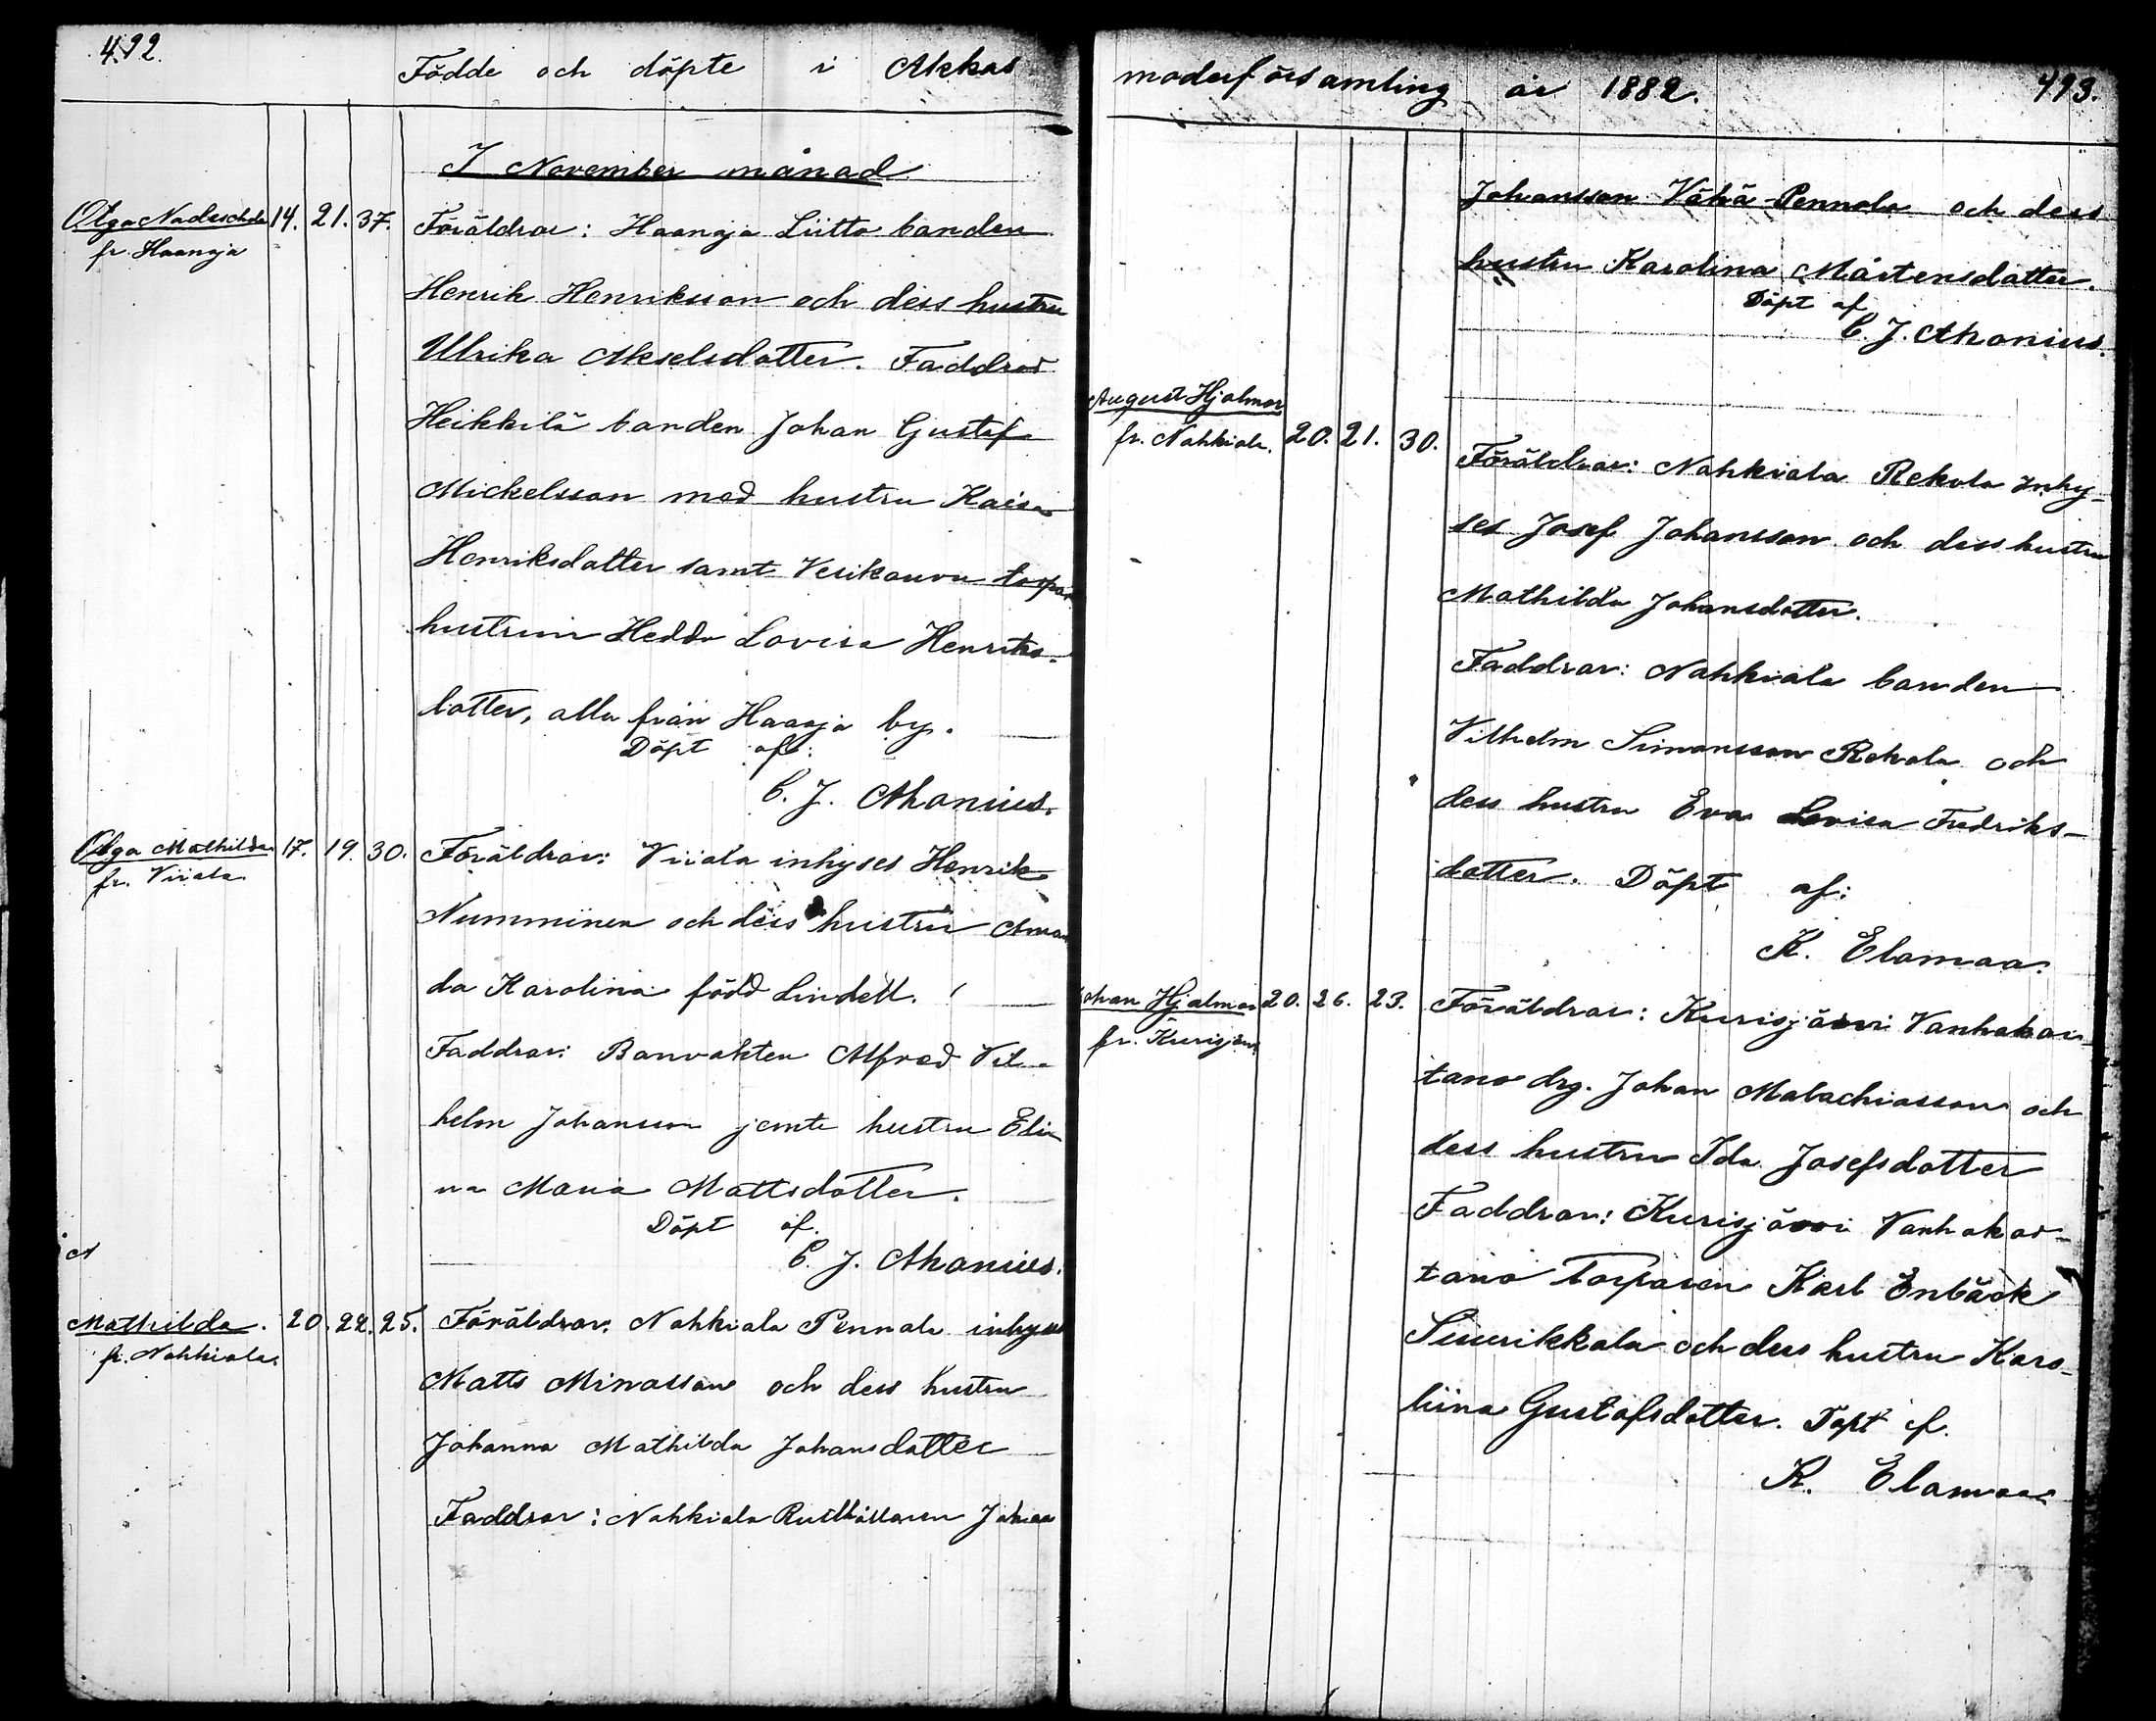 492.
Födde och döpte i Akkas
I November månad
Olga Nadeschda 14. 21. 37. Föräldrar: Haanoja Liitto bonden
fr. Haanoja
Henrik Henriksson och dess hustru
Ulrika Akselsdotter. Faddrar
Heikkilä bonden Johan Gustaf
Mickelsson med hustru Kaisa
Henriksdotter samt Vesikouvu torpar
hustrun Hedda Lovisa Henriks-
dotter, alla från Haaoja by.
Döpt af:
C. J. Ahonius.
Olga Mathilda 17. 19. 30. Föräldrar: Viiala inhyses Henrik
fr. Viiala
Numminen och dess hustru Aman
da Karolina född Lindell.
Faddrar: Banvakten Alfred Vil-
helm Johansson jemte hustru Eli-
na Maria Mattsdotter.
Döpt af.
C. J. Ahonius.
Mathilda. 20. 22. 25. Föräldrar: Nahkiala Pennala inhyses
fr. Nahkiala
Matts Minasson och dess hustru
Johanna Mathilda Johansdotter
Faddrar: Nahkiala Rusthållaren Johan
moderförsamling år 1882. 493.
Johansson Vähä-Pennala och dess
hustru Karolina Mårtensdotter.
Döpt af
C. J. Ahonius.
August Hjalmar
fr. Nahkiala. 20. 21. 30.
Föräldrar: Nahkiala Rekola inhy-
ses Josef Johansson och dess hustru
Mathilda Johansdotter.
Faddrar: Nahkiala bonden
Vilhelm Simonsson Rekola och
dess hustru Eva Lovisa Fredriks-
dotter. Döpt af:
K. Elomaa.
Johan Hjalmar 20. 26. 23. Föräldrar: Kurisjärvi Vanhakar-
fr. Kurisjärvi
tano drg. Johan Malachiasson och
dess hustru Ida Josefsdotter
Faddrar: Kurisjärvi Vanhakar-
tano torparen Karl Enbäck
Suurikkala och dess hustru Karo-
liina Gustafsdotter. Döpt af.
K. Elomaa